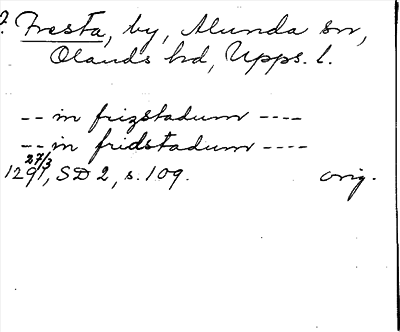 ?. Fresta, by, Alunda sn,
Olands hd, Upps. l.
-- in frizstadum ----
-- in fridstadum ----
27/3
1291, SD 2, s. 109. orig.